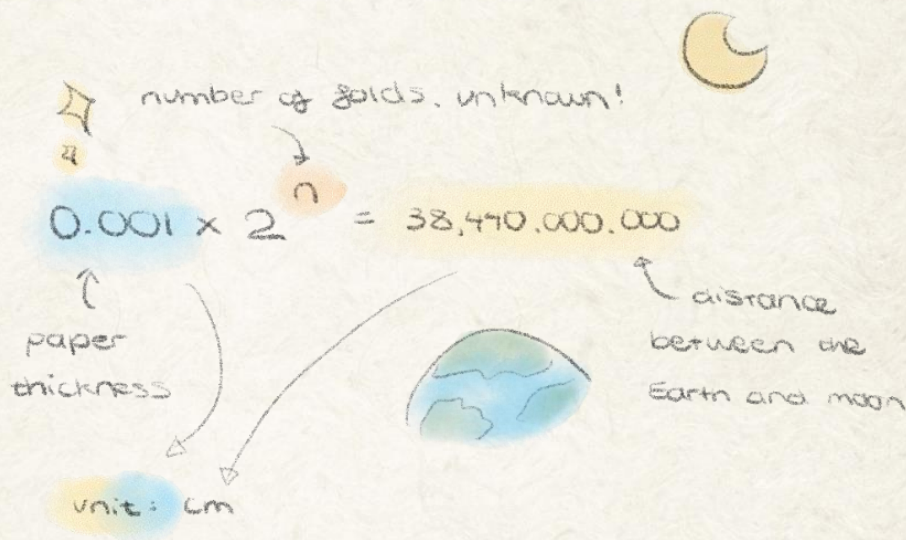 number of folds. unknown!
0.001 x 2^n = 38,440.000.000
paper
thickness
distance
between the
Earth and moon
unit: cm